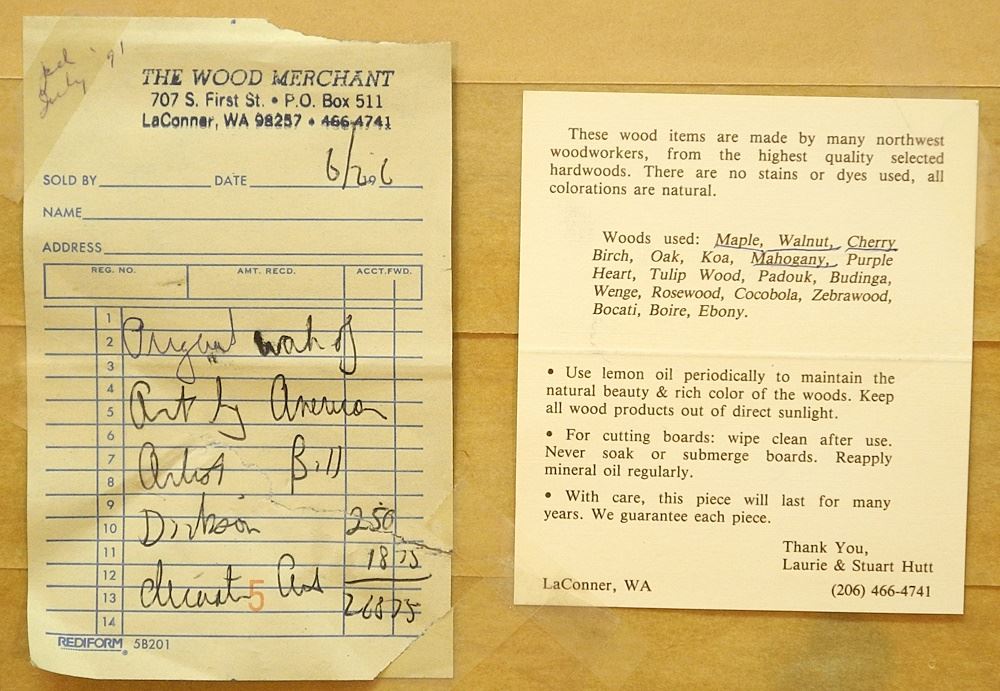 July '91
THE WOOD MERCHANT
707 S. First St. • P.O. Box 511
LaConner, WA 98257 • 466-4741
SOLD BY DATE 6/26 19
NAME
ADDRESS
REG. NO. AMT. RECD. ACCT. FWD.
1
2 Original work of
3
4
5 Art by American
6
7
8 Artist Bill
9
10 250
11 18 75
12
13 5 268 75
14
REDIFORM® 5B201
These wood items are made by many northwest
woodworkers, from the highest quality selected
hardwoods. There are no stains or dyes used, all
colorations are natural.
Woods used: Maple, Walnut, Cherry
Birch, Oak, Koa, Mahogany, Purple
Heart, Tulip Wood, Padouk, Budinga,
Wenge, Rosewood, Cocobola, Zebrawood,
Bocati, Boire, Ebony.
• Use lemon oil periodically to maintain the
natural beauty & rich color of the woods. Keep
all wood products out of direct sunlight.
• For cutting boards: wipe clean after use.
Never soak or submerge boards. Reapply
mineral oil regularly.
• With care, this piece will last for many
years. We guarantee each piece.
Thank You,
Laurie & Stuart Hutt
LaConner, WA (206) 466-4741